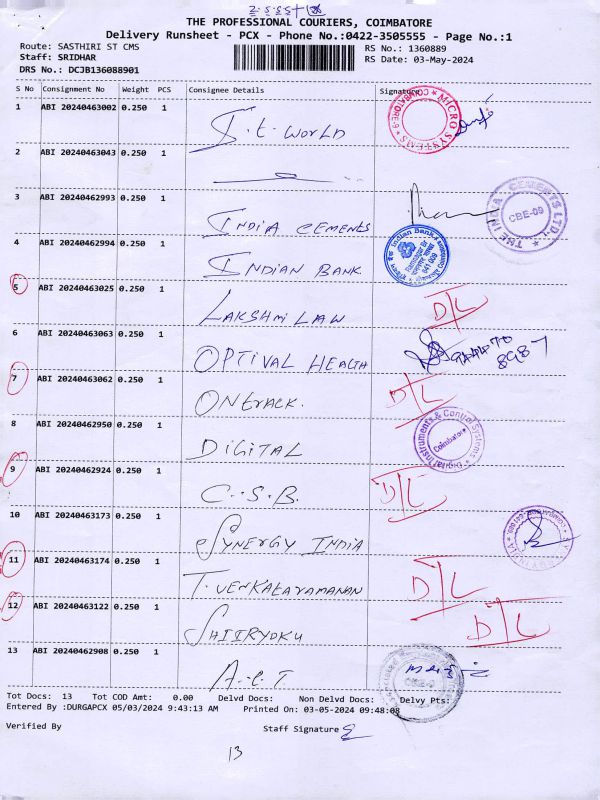 THE PROFESSIONAL COURIERS, COIMBATORE
Delivery Runsheet - PCX - Phone No.:0422-3505555 - Page No.:1
Route: SASTHIRI ST CMS RS No.: 1360889
Staff: SRIDHAR RS Date: 03-May-2024
DRS No.: DCJB136088901
S No Consignment No Weight PCS Consignee Details Signature
1 ABI 20240463002 0.250 1 I.t. WORLD MICRO SYSTEMS COIMBATORE-9
2 ABI 20240463043 0.250 1
3 ABI 20240462993 0.250 1 INDIA CEMENTS THE INDIA CEMENTS LTD., CBE-09
4 ABI 20240462994 0.250 1 INDIAN BANK Indian Bank Ramnagar Br 641 009
5 ABI 20240463025 0.250 1 LAKSHMI LAW D/L
6 ABI 20240463063 0.250 1 OPTIVAL HEALTH 8987
7 ABI 20240463062 0.250 1 ONERACK. D/L
8 ABI 20240462950 0.250 1 DIGITAL Digital Instruments & Control Systems Coimbatore
9 ABI 20240462924 0.250 1 C.S.B. D/L
10 ABI 20240463173 0.250 1 eSYNERGY INDIA
11 ABI 20240463174 0.250 1 T. VENKATARAMANAN D/L
12 ABI 20240463122 0.250 1 SHIIRYOKU D/L
13 ABI 20240462908 0.250 1 A.C.T.
Tot Docs: 13 Tot COD Amt: 0.00 Delvd Docs: Non Delvd Docs: Delvy Pts:
Entered By :DURGAPCX 05/03/2024 9:43:13 AM Printed On: 03-05-2024 09:48:08
Verified By Staff Signature
13